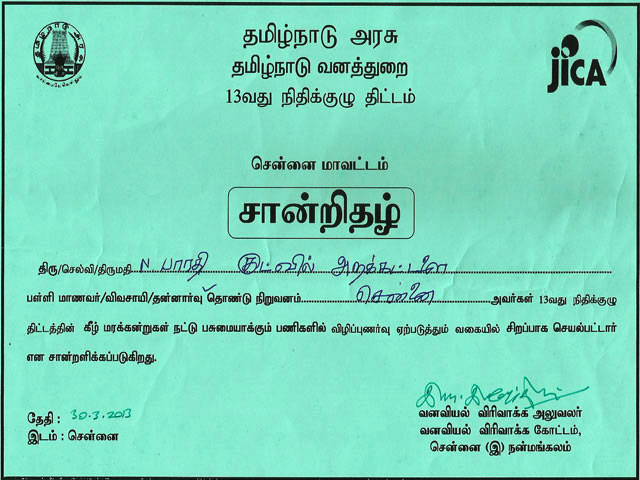 தமிழ்நாடு அரசு
தமிழ்நாடு வனத்துறை
13வது நிதிக்குழு திட்டம்
jICA
சென்னை மாவட்டம்
சான்றிதழ்
திரு/செல்வி/திருமதி N. பாரதி குட்வில் அறக்கட்டளை
பள்ளி மாணவர்/விவசாயி/தன்னார்வ தொண்டு நிறுவனம் சென்னை அவர்கள் 13வது நிதிக்குழு
திட்டத்தின் கீழ் மரக்கன்றுகள் நட்டு பசுமையாக்கும் பணிகளில் விழிப்புணர்வு ஏற்படுத்தும் வகையில் சிறப்பாக செயல்பட்டார்
என சான்றளிக்கப்படுகிறது.
தேதி : 30.3.2013
இடம் : சென்னை
வனவியல் விரிவாக்க அலுவலர்
வனவியல் விரிவாக்க கோட்டம்,
சென்னை (இ) நன்மங்கலம்